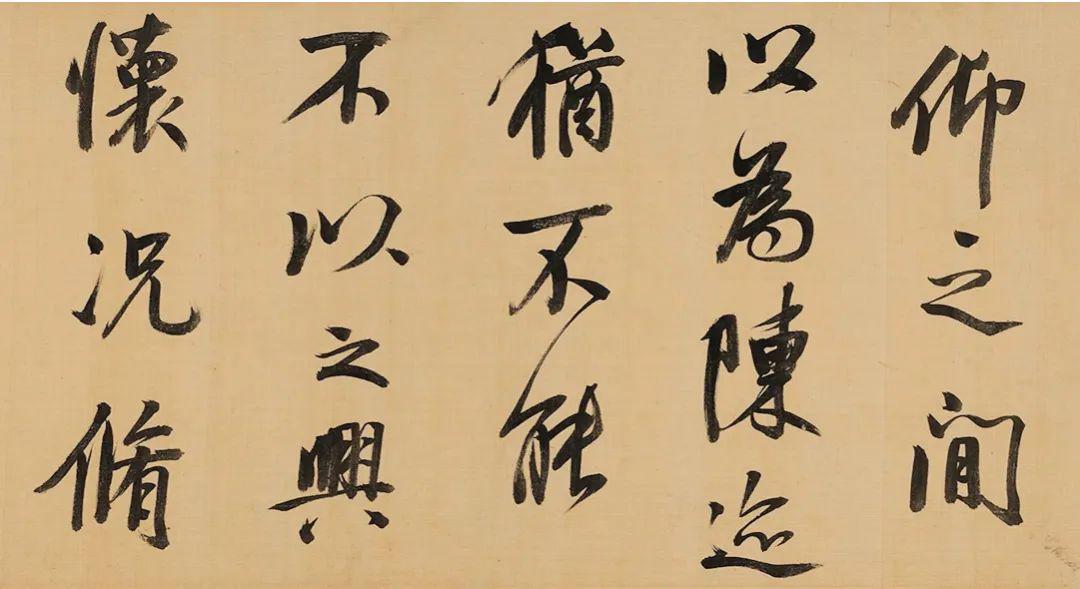 仰之間
以為陳迹
猶不能
不以之興
懷况脩